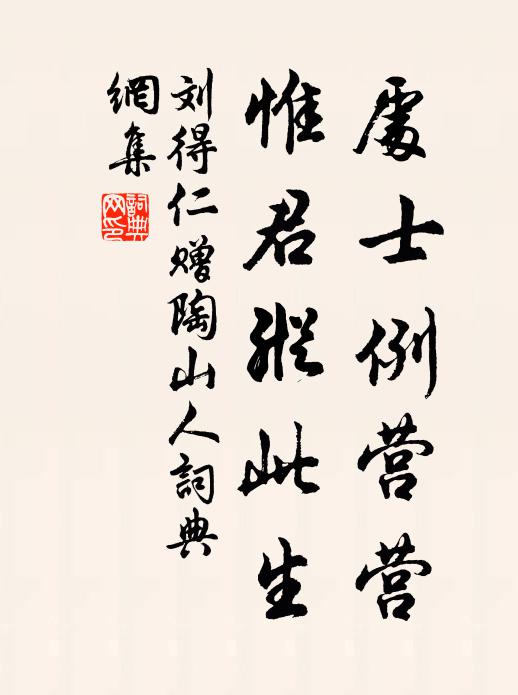 處士例营营
惟君縱此生
刘得仁赠陶山人詞典
網集
詞典
网印